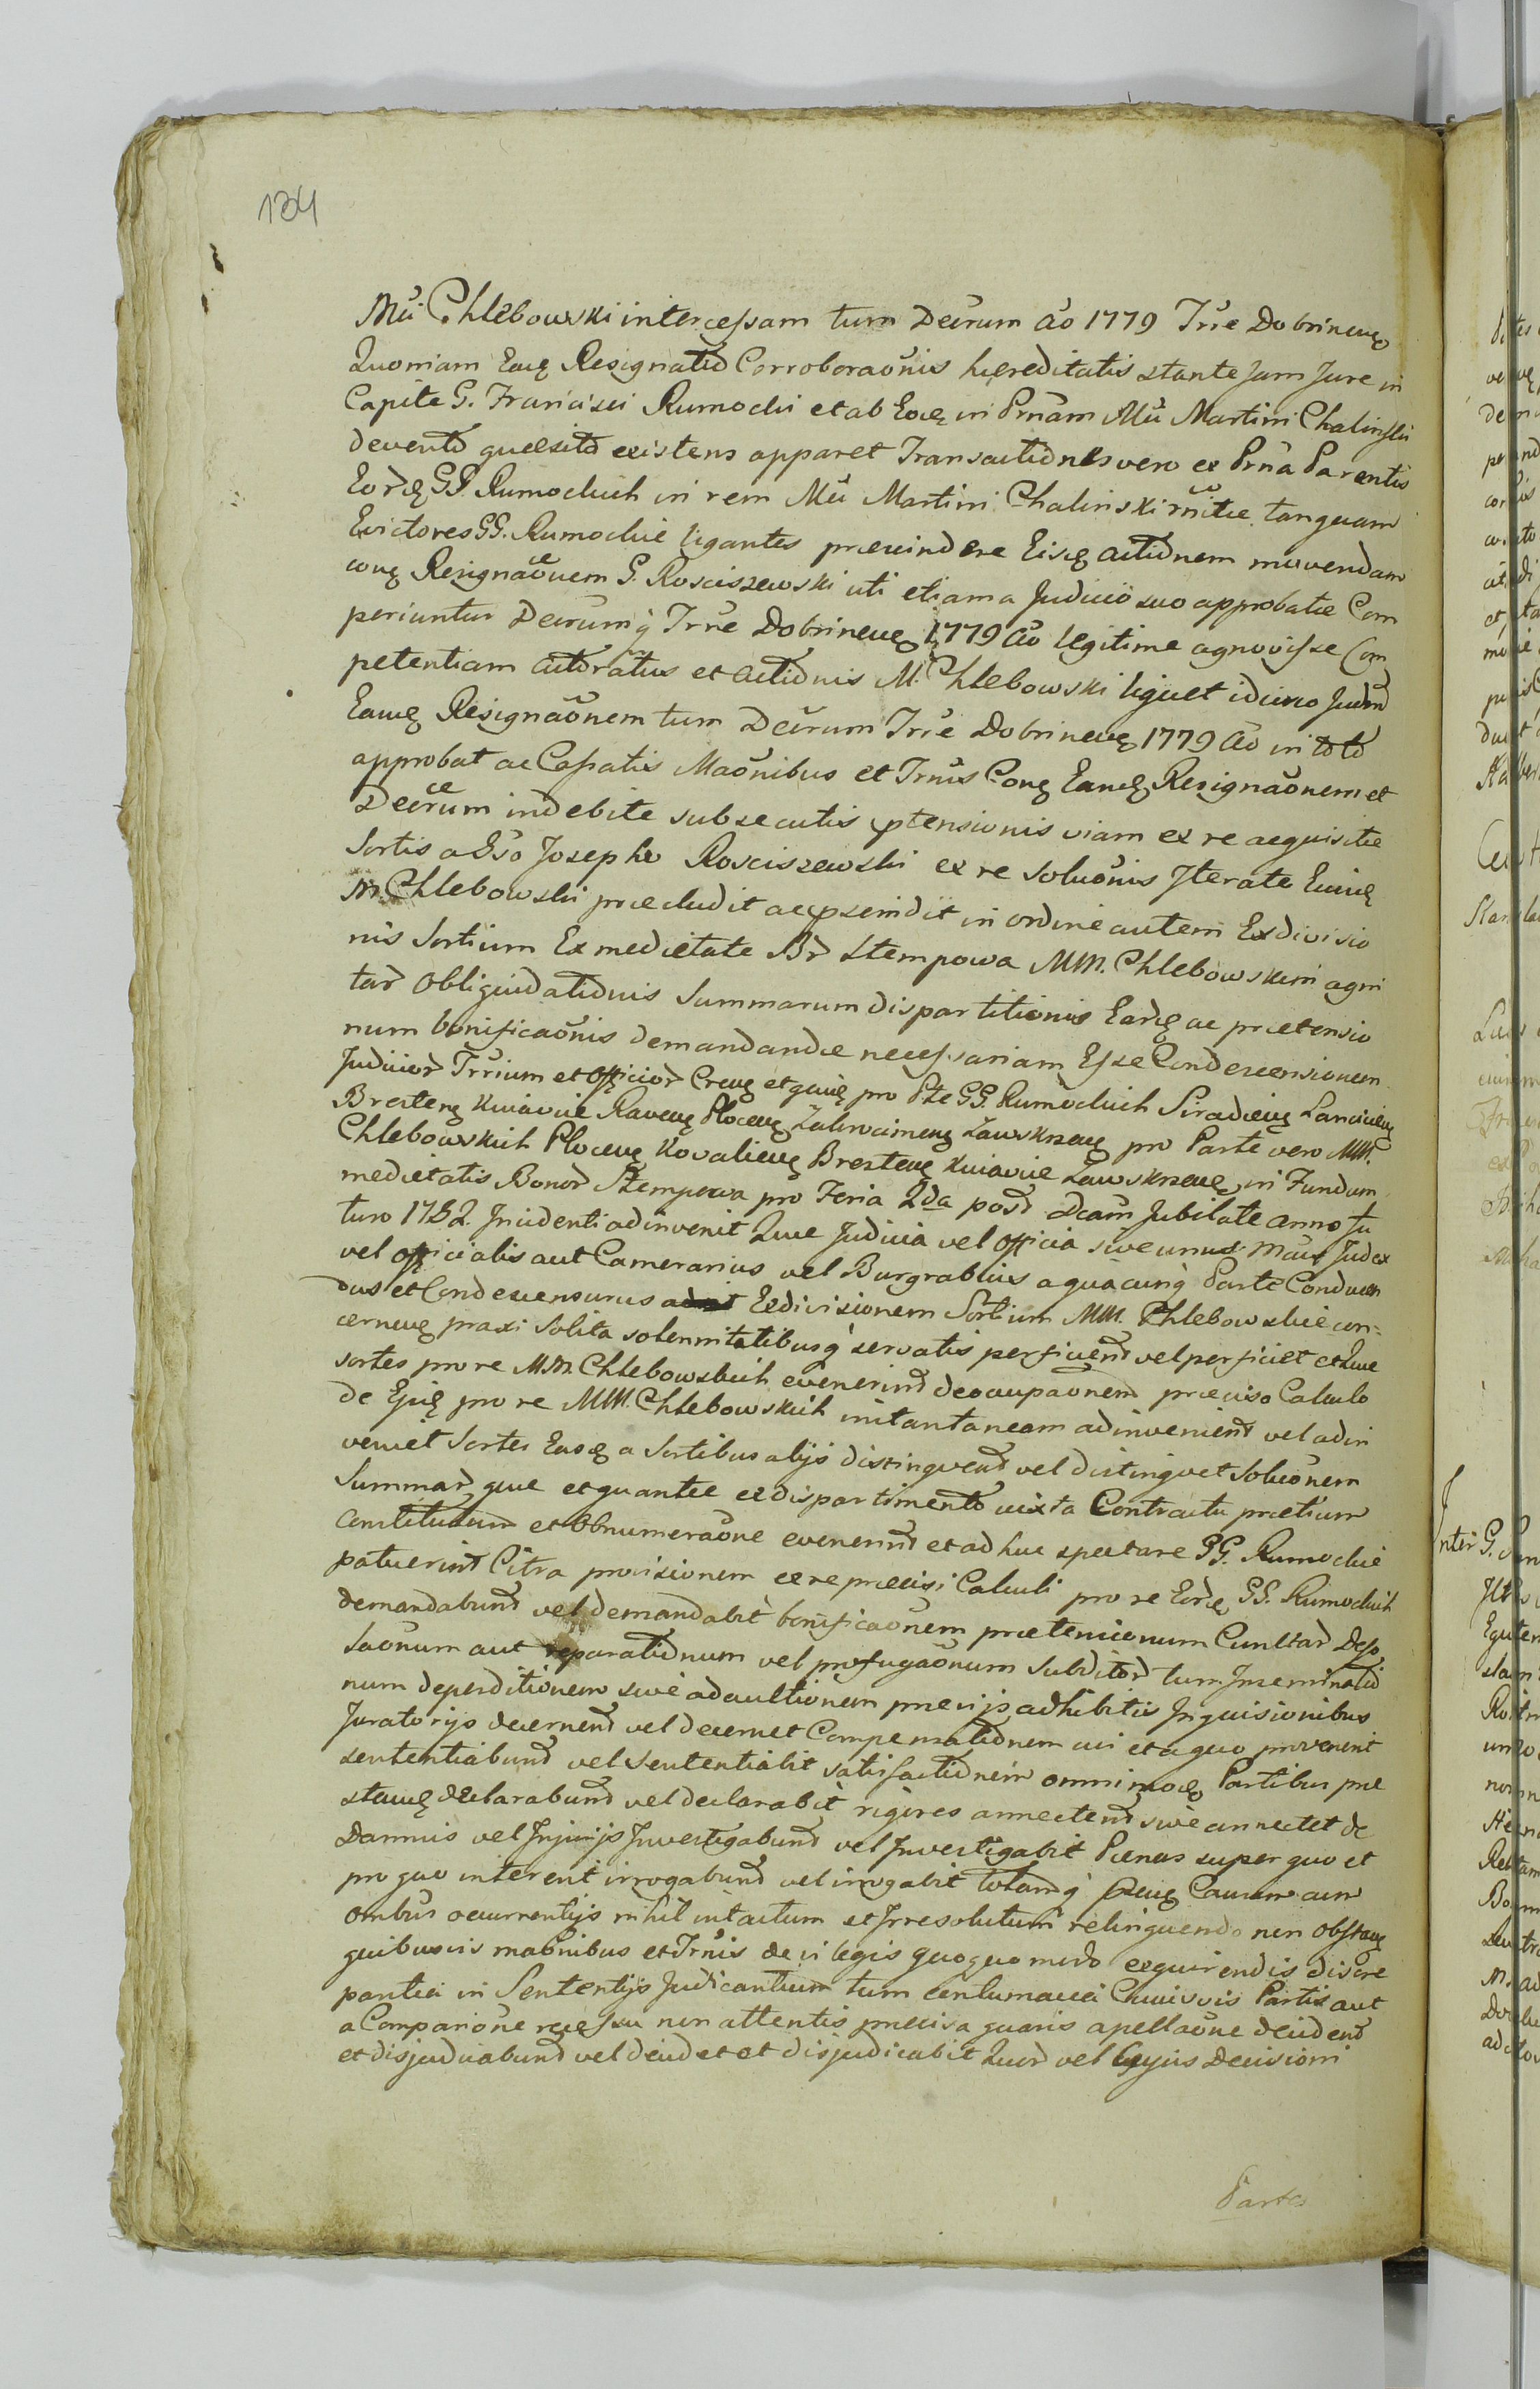 134
Mci Chlebowski intercessam tum Decrum ao 1779 Trre Dobrineng
Quoniam Eaq Resignatio Corroboraonis hęreditatis stante Jam Jure in
Capite G. Francisci Rumocki et ab Eoq in Prnam Mci Martini Chalinski
devento quesito existens apparet Transactiones vero ex Prna Parentis
Eordq GG. Rumockich in rem Mci Martini Chalinski tanquam
Evictores GG. Rumockie ligantes præscindere Eisq actionem movendam
conq Resignaonem G. Rosciszewski uti etiam a Judicio suo approbatæ Com
periuntur Decrumq Trre Dobrineng 1779 ao legitime agnovisse Com
petentiam actoratus et actionis M. Chlebowski liquet idcirco Judm
Eamq Resignaonem tum Decrum Trre Dobrineng 1779 ao in toto
approbat ac Cassatis Maonibus et Trnis Conq Eandq Resignaonem et
Decrum indebite subsecutis ptensionis viam ex re acquisitæ
Sortis a Gso Josepho Rosciszewski ex re soluonis Iteratæ Euiq
M. Chlebowski præcludit ac pscindit in ordine autem Exdivisio
nis Sortium Ex medietate Br Stempowa MM. Chlebowskim agni
tar obliquidationis Summarum dispartitionis Eardq ac prætensio
num bonificaonis demandandæ necessariam Esse Condescensionem
Judicior Trrium et Officior Creng et quiq pro Pte GG. Rumockich Siradieng Lancicieng
Bresteng Kuiaviæ Raveng Ploceng Zakrocimeng Zawskrzeng pro Parte vero MM.
Chlebowskich Ploceng Kovalieng Bresteng Kuiaviæ Zawskrzeng in Fundum
medietatis Bonor Stempowa pro Feria 2da post Dcam Jubilate anno Fu
turo 1782 Incidenti adinvenit Quæ Judicia vel Officia sive unus Mcus Judex
vel officialis aut Camerarius vel Burgrabius a quacunq Parte Conducen
dus et Condescensurus Exdivisionem Sortium MM. Chlebowskie con=
cerneng praxi Solita solennitatibusq servatis perficiend vel perficiet et Quæ
sortes pro re MM. Chlebowskich evenerint deocupaonem præciso Calculo
de Ejsq pro re MM. Chlebowskich instantaneam adinvenient vel adin
veniet Sortes Easq a Sortibus alijs distingvent vel distingvet Soluonem
Summar quæ et quantæ ex dispartimento iuxta Contractu prætium
constitutum et obnumeraone evenerint et ad huc spectare GG. Rumockie
patuerint Citra provisionem ex re præcisi Calculi pro re Eordq GG. Rumockich
demandabunt vel demandabit bonificaonem prætensionum Cunctar Deso
laonum aut reparationum vel profugaonum Subditor tum Inseminatio
num deperditionem sive adauctionem prævijs adhibitis Inquisitionibus
Juratorijs decernent vel decernet Compensationem cui et a quo provenerit
sententiabunt vel Sententiabit satisfactionem omnimodq Partibus præ
standq declarabunt vel declarabit rigores annectent sive annectet de
Damnis vel Injurijs Investigabunt vel Investigabit Pænas super quo et
pro quo intererit irrogabunt vel irrogabit totamq Causam cum
onibus occurrentijs nihil intactum et Irresolutum relinquendo non obstang
quibusvis maonibus et Trnis de vi legis quoquo modo exquirendis discre
pantia in Sententijs Judicantium tum contumacia Cuiusvis Partis aut
a Comparione recessu non attentis præcisa quavis apellaone decident
et disjudicabunt vel decidet et disjudicabit Quor vel Cujus Decisioni
Partes